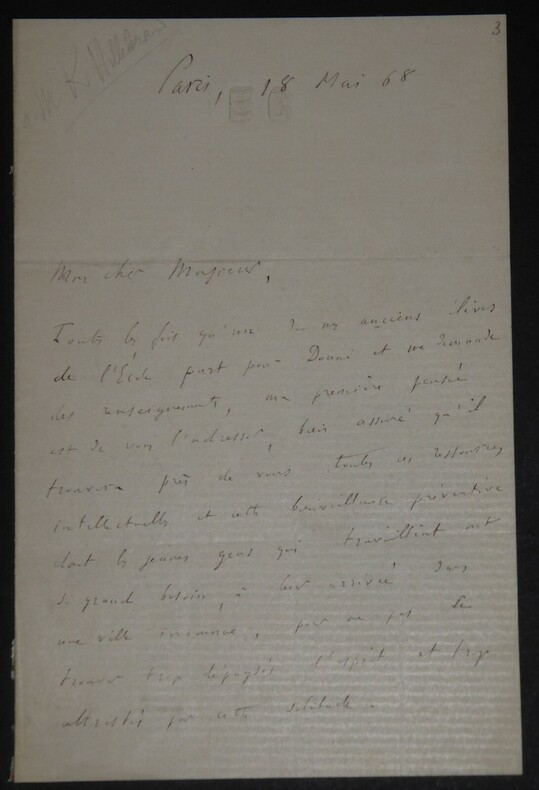 3
à M. K Hillebrand
Paris, 18 Mai 68
Mon cher Monsieur,
Toutes les fois qu'un de mes anciens élèves
de l'École part pour Douai et me demande
des renseignements, ma première pensée
est de vous l'adresser, bien assuré qu'il
trouvera près de vous toutes les ressources
intellectuelles et cette bienveillance prévenante
dont les jeunes gens qui travaillent ont
si grand besoin, à leur arrivée dans
une ville inconnue, pour ne pas se
trouver trop dépaysés d'esprit et trop
attristés par cette solitude.